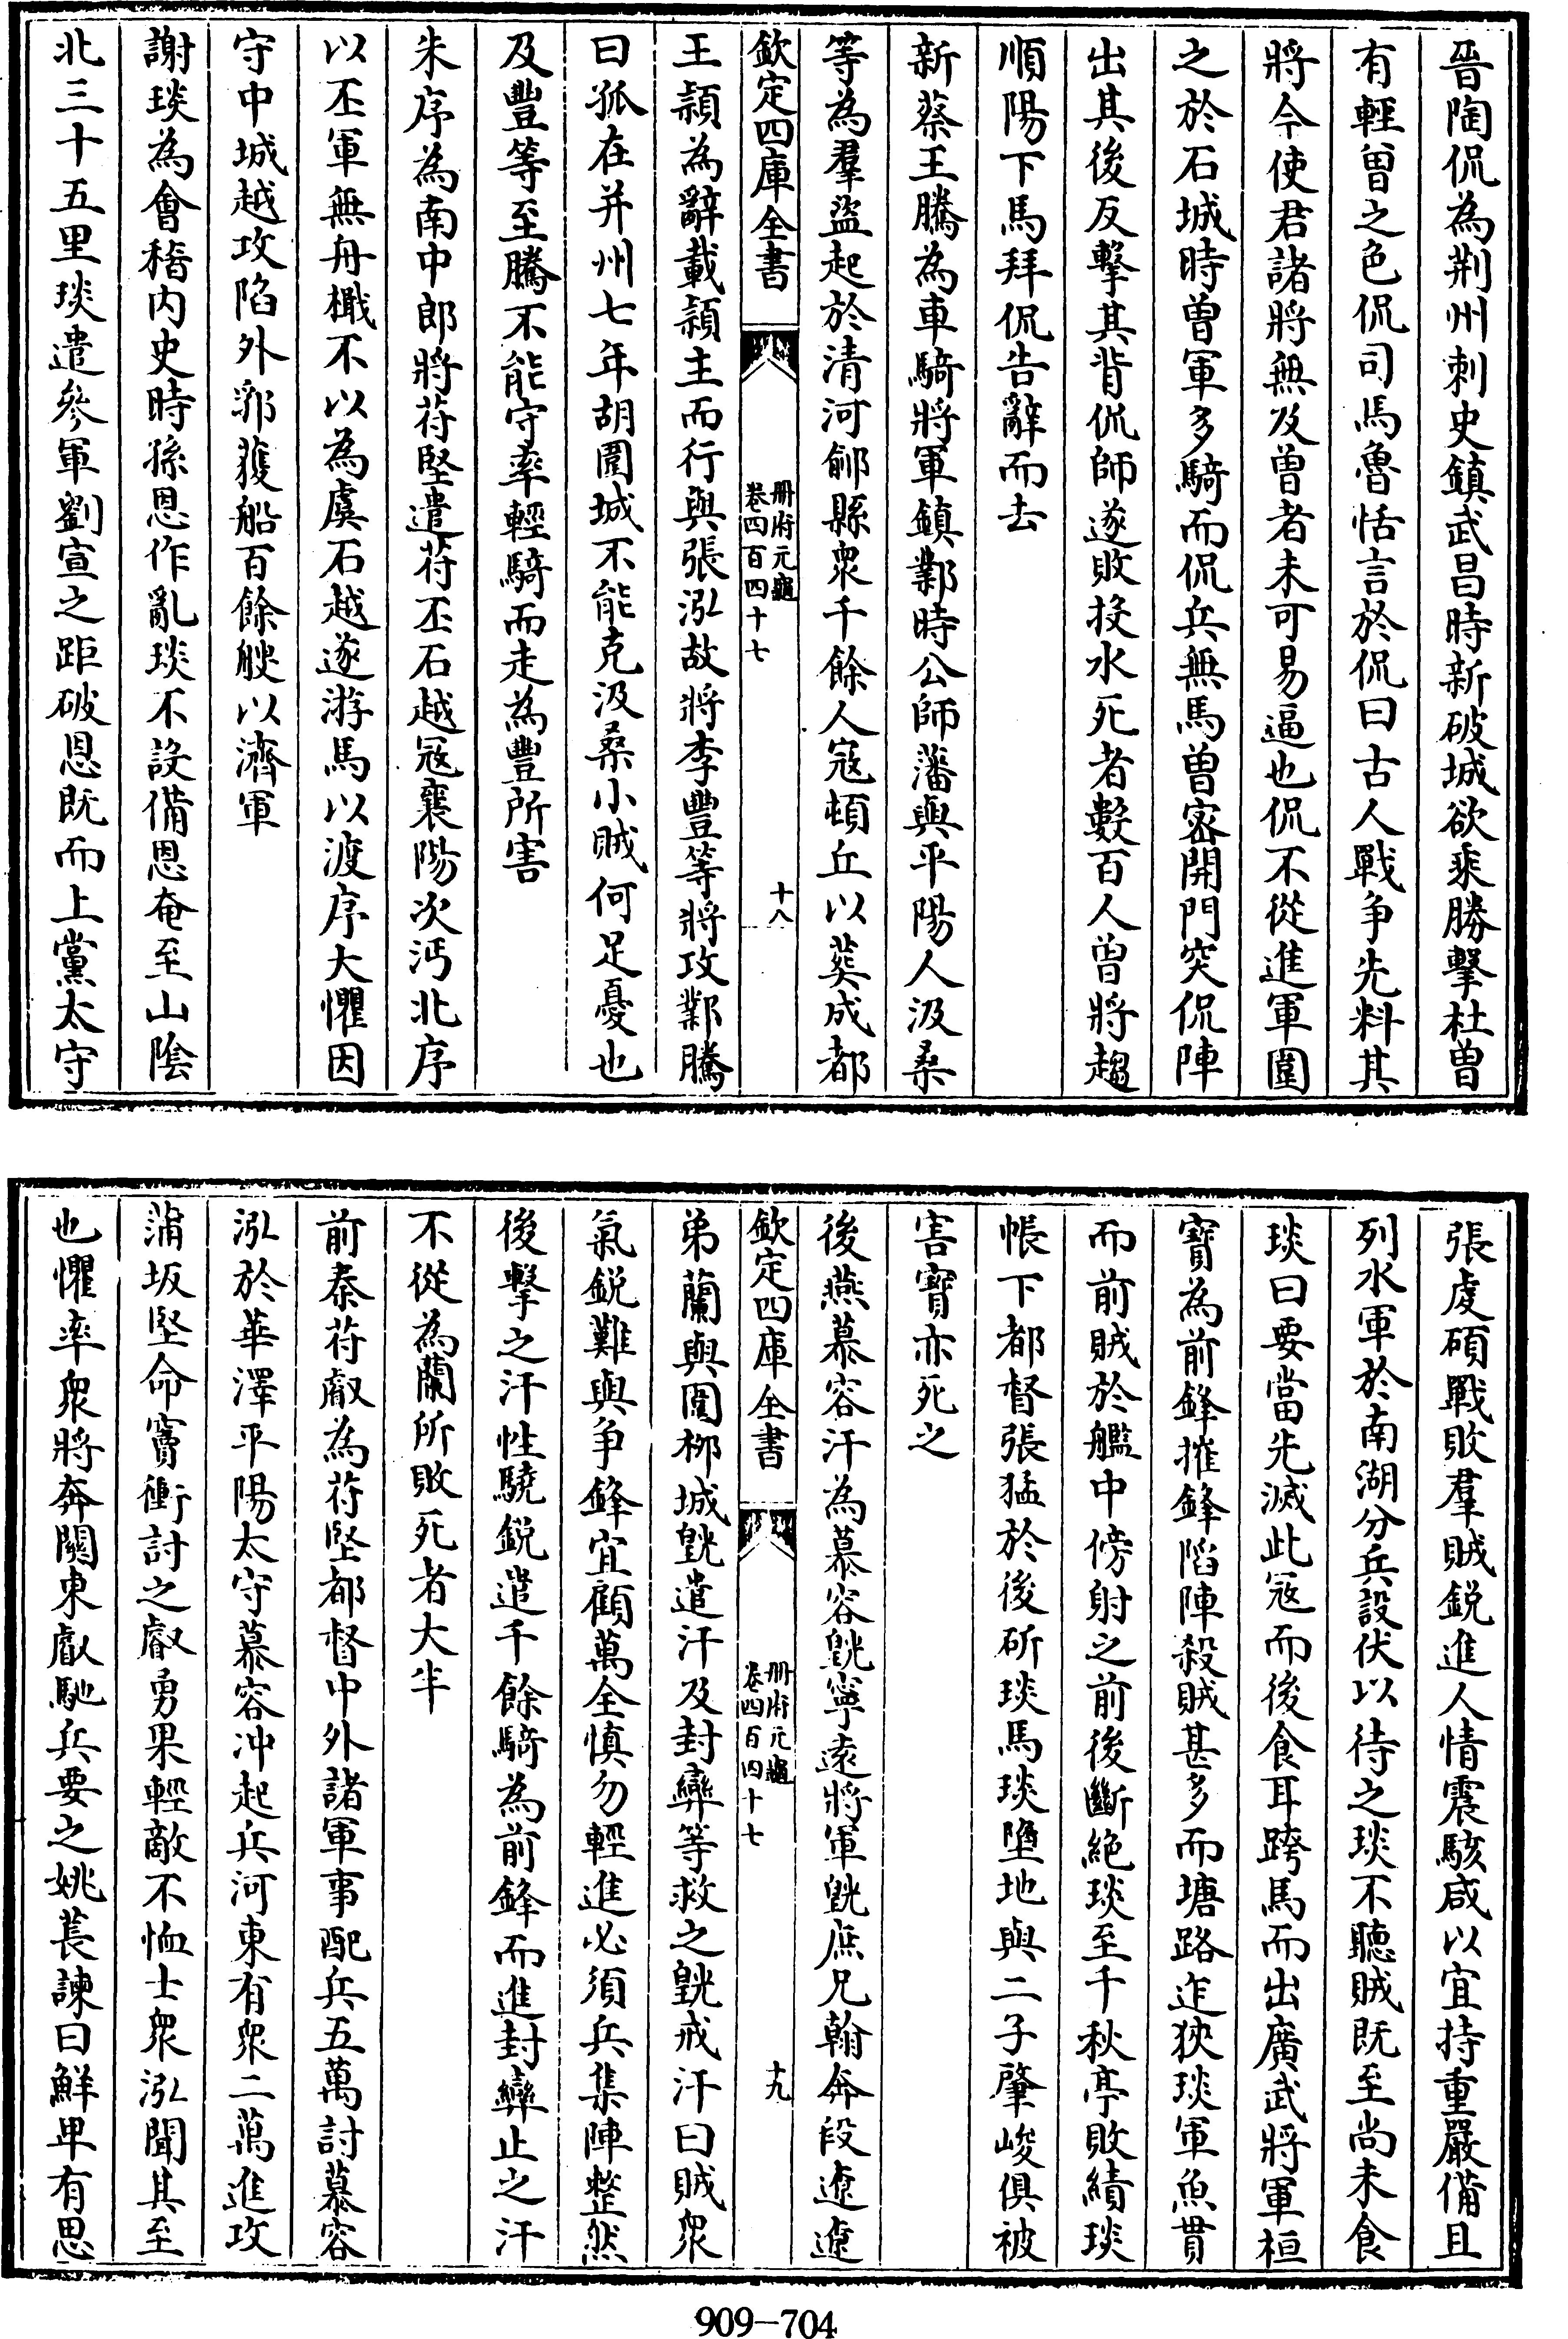 晉陶侃為荆州刺史鎮武昌時新破城欲乘勝擊杜曾
有輕曾之色侃司馬魯恬言於侃曰古人戰争先料其
將今使君諸將無及曾者未可易逼也侃不從進軍圍
之於石城時曾軍多騎而侃兵無馬曾宻開門突侃陣
出其後反擊其背侃師遂敗投水死者數百人曾將趨
順陽下馬拜侃告辭而去
新蔡王騰為車騎將軍鎮鄴時公師藩與平陽人汲桑
等為羣盜起於清河鄃縣衆千餘人寇頓丘以葬成都
欽定四庫全書
冊府元龜
卷四百四十七
十八
王頴為辭載頴主而行與張泓故將李豐等將攻鄴騰
曰孤在并州七年胡圍城不能克汲桑小賊何足憂也
及豐等至騰不能守率輕騎而走為豐所害
朱序為南中郎將苻堅遣苻丕石越冦襄陽次沔北序
以丕軍無舟檝不以為虞石越遂游馬以渡序大懼因
守中城越攻陷外郛獲船百餘艘以濟軍
謝琰為會稽内史時孫恩作亂琰不設備恩奄至山隂
北三十五里琰遣參軍劉宣之距破恩既而上黨太守
張虔碩戰敗羣賊鋭進人情震駭咸以宜持重嚴備且
列水軍於南湖分兵設伏以待之琰不聽賊既至尚未食
琰曰要當先滅此冦而後食耳跨馬而出廣武將軍桓
寳為前鋒摧鋒陷陣殺賊甚多而塘路迮狹琰軍魚貫
而前賊於艦中傍射之前後斷絶琰至千秋亭敗績琰
帳下都督張猛於後斫琰馬琰墮地與二子肇峻俱被
害寳亦死之
後燕慕容汗為慕容皝寧逺將軍皝庶兄翰奔段遼遼
欽定四庫全書
冊府元龜
卷四百四十七
十九
弟蘭與圍栁城皝遣汗及封奕等救之皝戒汗曰賊衆
氣鋭難與争鋒宜顧萬全慎勿輕進必須兵集陣整然
後擊之汗性驍鋭遣千餘騎為前鋒而進封奕止之汗
不從為蘭所敗死者大半
前秦苻叡為苻堅都督中外諸軍事配兵五萬討慕容
泓於華澤平陽太守慕容冲起兵河東有衆二萬進攻
蒲坂堅命竇衝討之叡勇果輕敵不恤士衆泓聞其至
也懼率衆將奔關東叡馳兵要之姚萇諫曰鮮卑有思
909-704